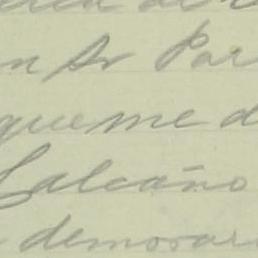 n Sr Par
que me d
Galcaño
demorar